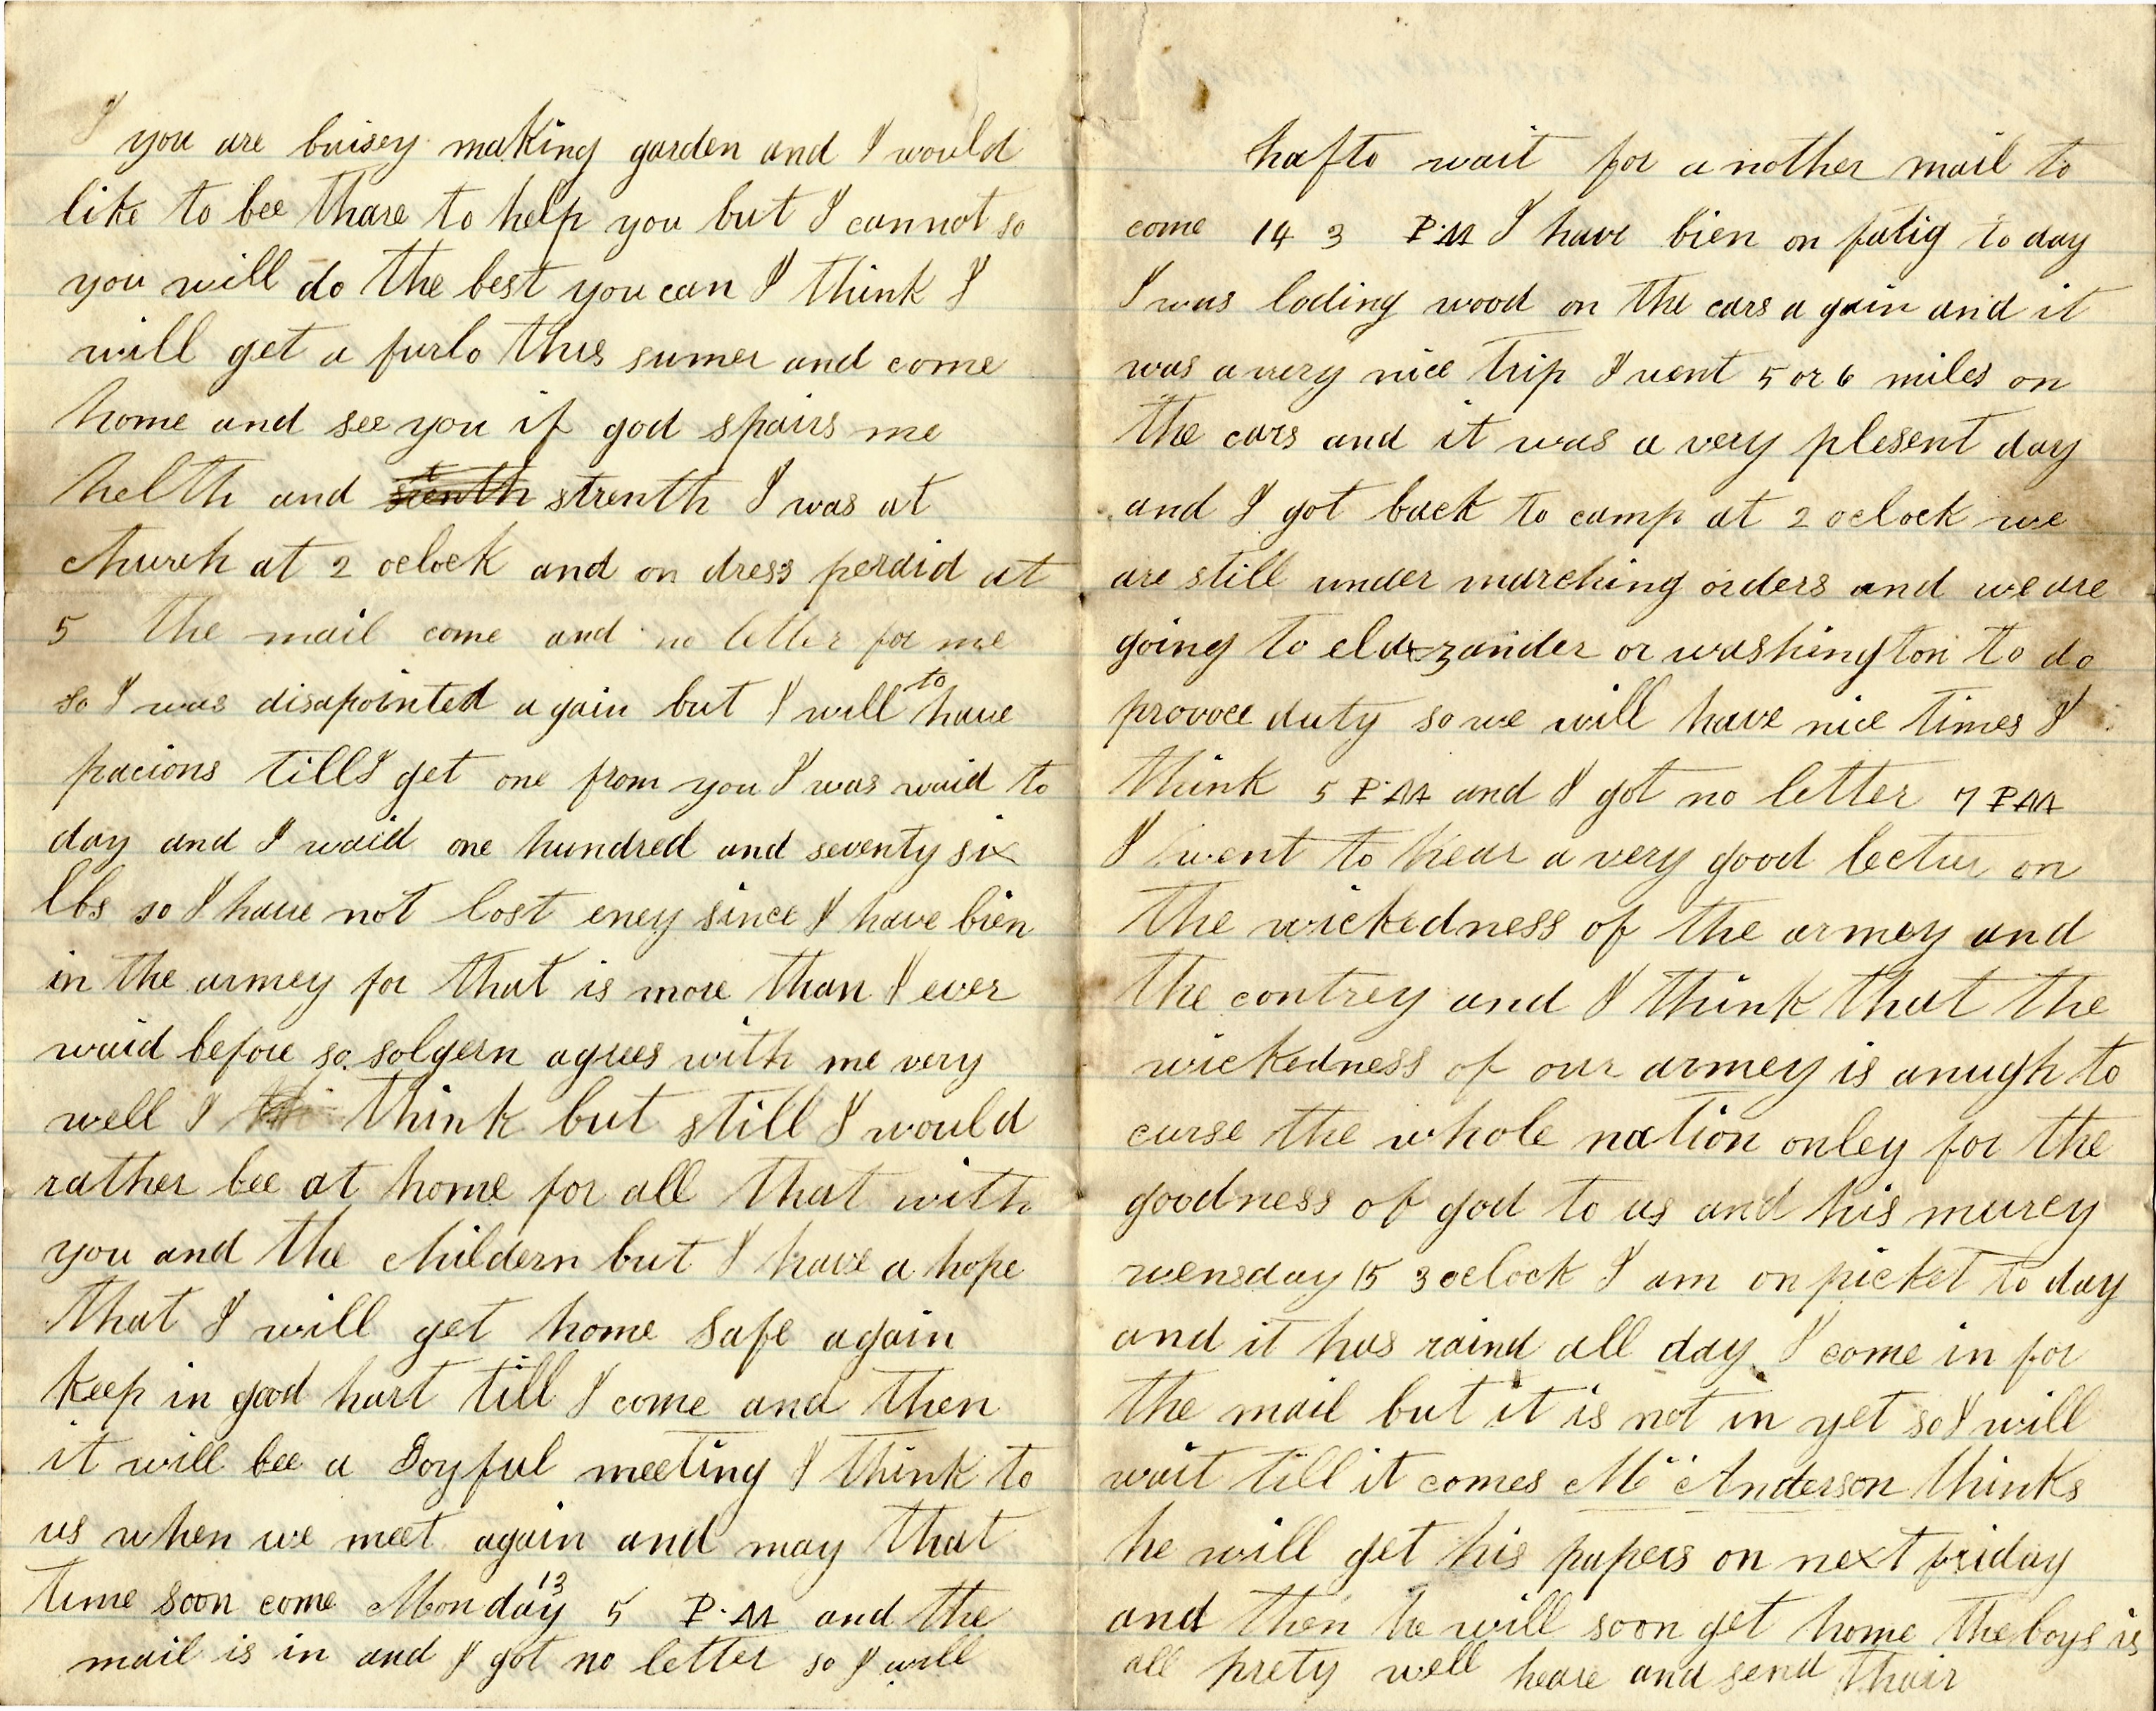 I you are buisey making garden and I would
like to bee thare to help you but I cannot so
you will do the best you can I think I
will get a furlo this sumer and come
home and see you if god spairs me
helth and strenth I was at
church at 2 oclock and on dress peraid at
5 the mail come and no letter for me
so I was disapointed again but I will to have
pacions till I get one from you I was waid to
day and I waid one hundred and seventy six
lbs so I have not lost eney since I have bien
in the armey for that is more than I ever
waid before so solgern agrees with me very
well I think but still I would
rather bee at home for all that with
you and the childern but I have a hope
that I will get home safe again
keep in good hart till I come and then
it will bee a Joyful meeting I think to
us when we meet again and may that
time soon come Monday 13 5 P.M and the
mail is in and I got no letter so I will
hafto wait for a nother mail to
come 14 3 P.M I have bien on fatig to day
I was loding wood on the cars a gain and it
was a very nice trip I went 5 or 6 miles on
the cars and it was a very plesent day
and I got back to camp at 2 oclock we
are still under marching orders and we are
going to elaxzander or washington to do
provoce duty so we will have nice times I
think 5 P.M and I got no letter 7 P M
I went to hear a very good lectur on
the wickedness of the armey and
the contrey and I think that the
wickedness of our armey is anugh to
curse the whole nation onley for the
goodness of god to us and his murcy
wensday 15 3 oclock I am on picket to day
and it has raind all day I come in for
the mail but it is not in yet so I will
wait till it comes Mc Anderson thinks
he will get his papers on next friday
and then he will soon get home the boys is
all prety well heare and send thair